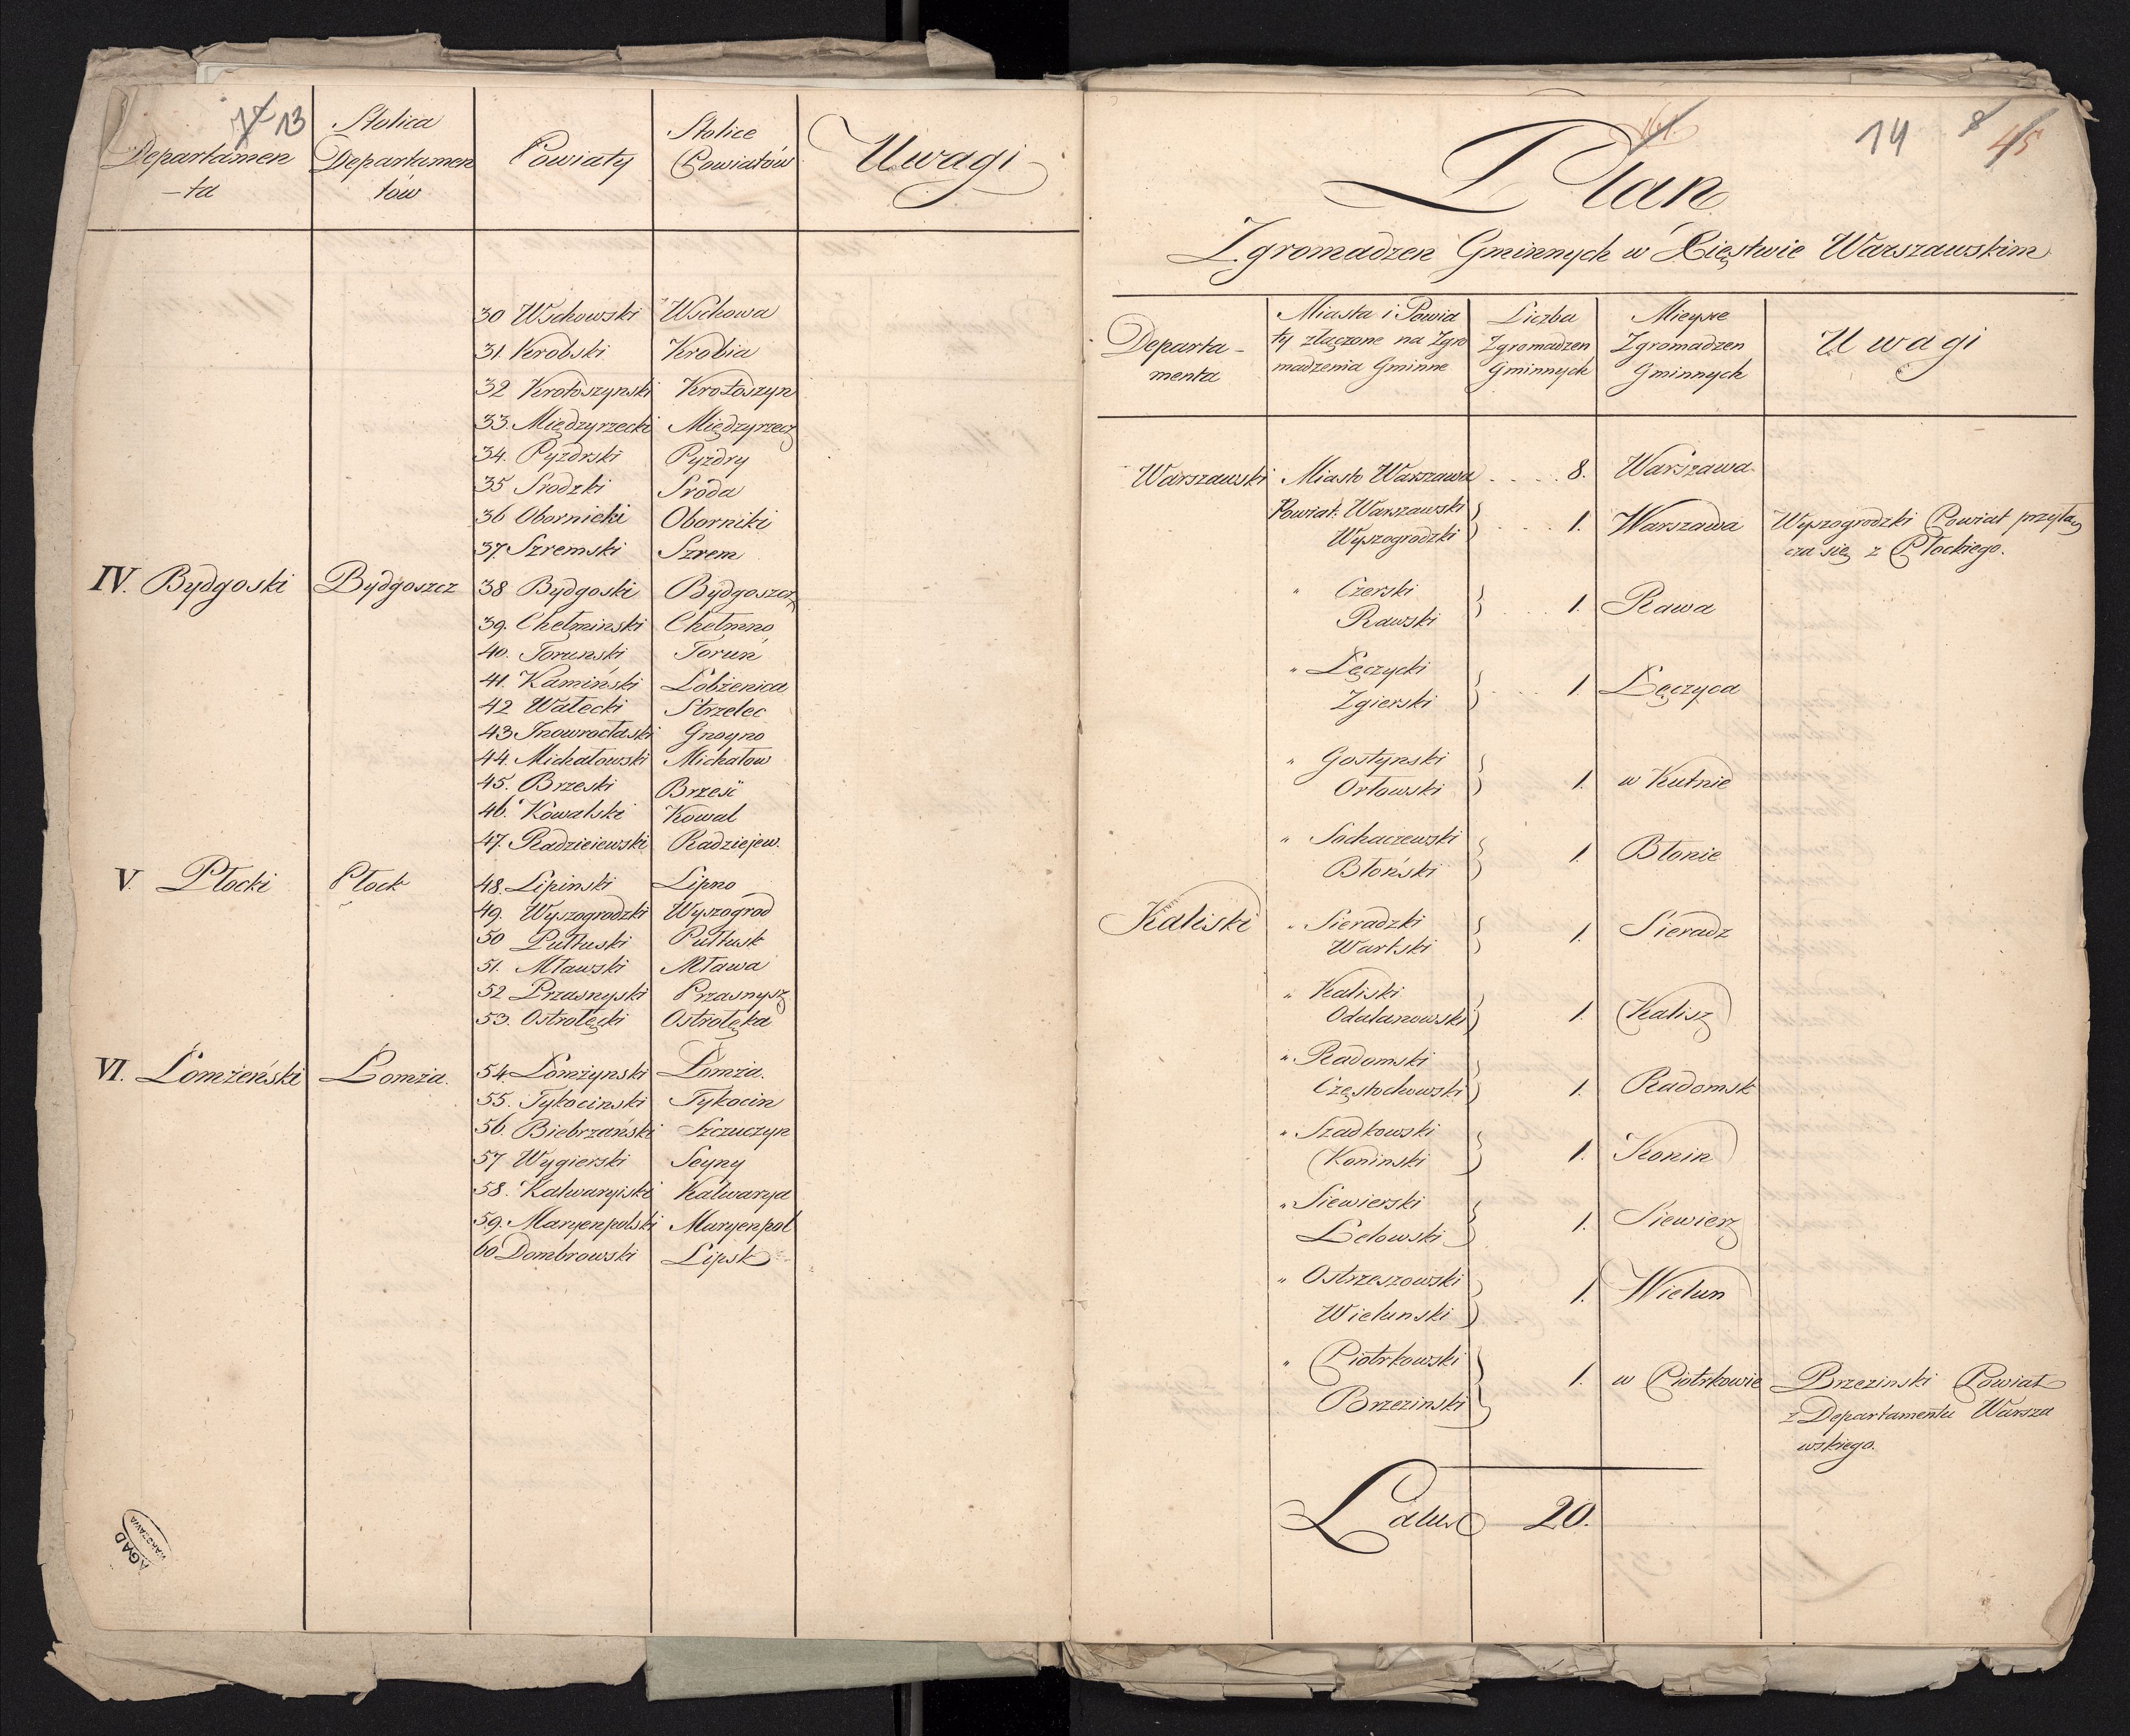 13
Departamen
-ta
Stolica
Departamen
tów
Powiaty
Stolice
Powiatów
Uwagi
30 Wschowski Wschowa
31. Krobski Krobia
32 Krotoszynski Krotoszyn
33. Międzyrzecki Międzyrzecz
34. Pyzdrski Pyzdry
35 Srodzki Sroda
36 Obornicki Oborniki
37. Szremski Szrem
IV. Bydgoski Bydgoszcz 38 Bydgoski Bydgoszcz
39. Chełminski Chełmno
40. Torunski Toruń
41. Kamiński Lobżenica
42 Wałecki Strzelec
43 Inowrocłaski Gnoyno
44. Michałowski Michałow
45. Brzeski Brześć
46. Kowalski Kowal
47. Radzieiewski Radziejew.
V. Płocki Płock 48. Lipinski Lipno
49. Wyszogrodzki Wyszogrod
50 Pułtuski Pułtusk
51. Mławski Mława
52 Przasnyski Przasnysz
53. Ostrołęcki Ostrołęka
VI. Łomżeński Łomża. 54. Łomżynski Łomża.
55. Tykocinski Tykocin
56. Biebrzański Szczuczyn
57 Wygierski Seyny
58. Kalwaryiski Kalwarya
59. Maryenpolski Maryenpol
60 Dombrowski Lipsk
AGAD
WARSZAWA
14 8 45
Plan
Zgromadzen Gminnych w Xięstwie Warszawskim
Departa-
menta
Miasta i Powia
ty złączone na Zgro
madzenia Gminne
Liczba
Zgromadzen
Gminnych
Mieysce
Zgromadzen
Gminnych
Uwagi
Warszawski Miasto Warszawa .... 8. Warszawa
Powiat: Warszawski
Wyszogrodzki ... 1. Warszawa Wyszogrodzki Powiat przyłą
cza się z Płockiego.
" Czerski
Rawski ... 1. Rawa
" Łęczycki
Zgierski ... 1. Łęczyca
" Gostynski
Orłowski 1. w Kutnie
" Sochaczewski
Błoński 1. Błonie
Kaliski " Sieradzki
Wartski 1. Sieradz
" Kaliski
Odalanowski 1. Kalisz
" Radomski
Częstochowski 1. Radomsk
" Szadkowski
Koninski 1. Konin
" Siewierski
Lelowski 1. Siewierz
" Ostrzeszowski
Wielunski 1. Wielun
" Piotrkowski
Brzezinski 1. w Piotrkowie Brzezinski Powiat
z Departamentu Warsza
wskiego.
Latus 20.